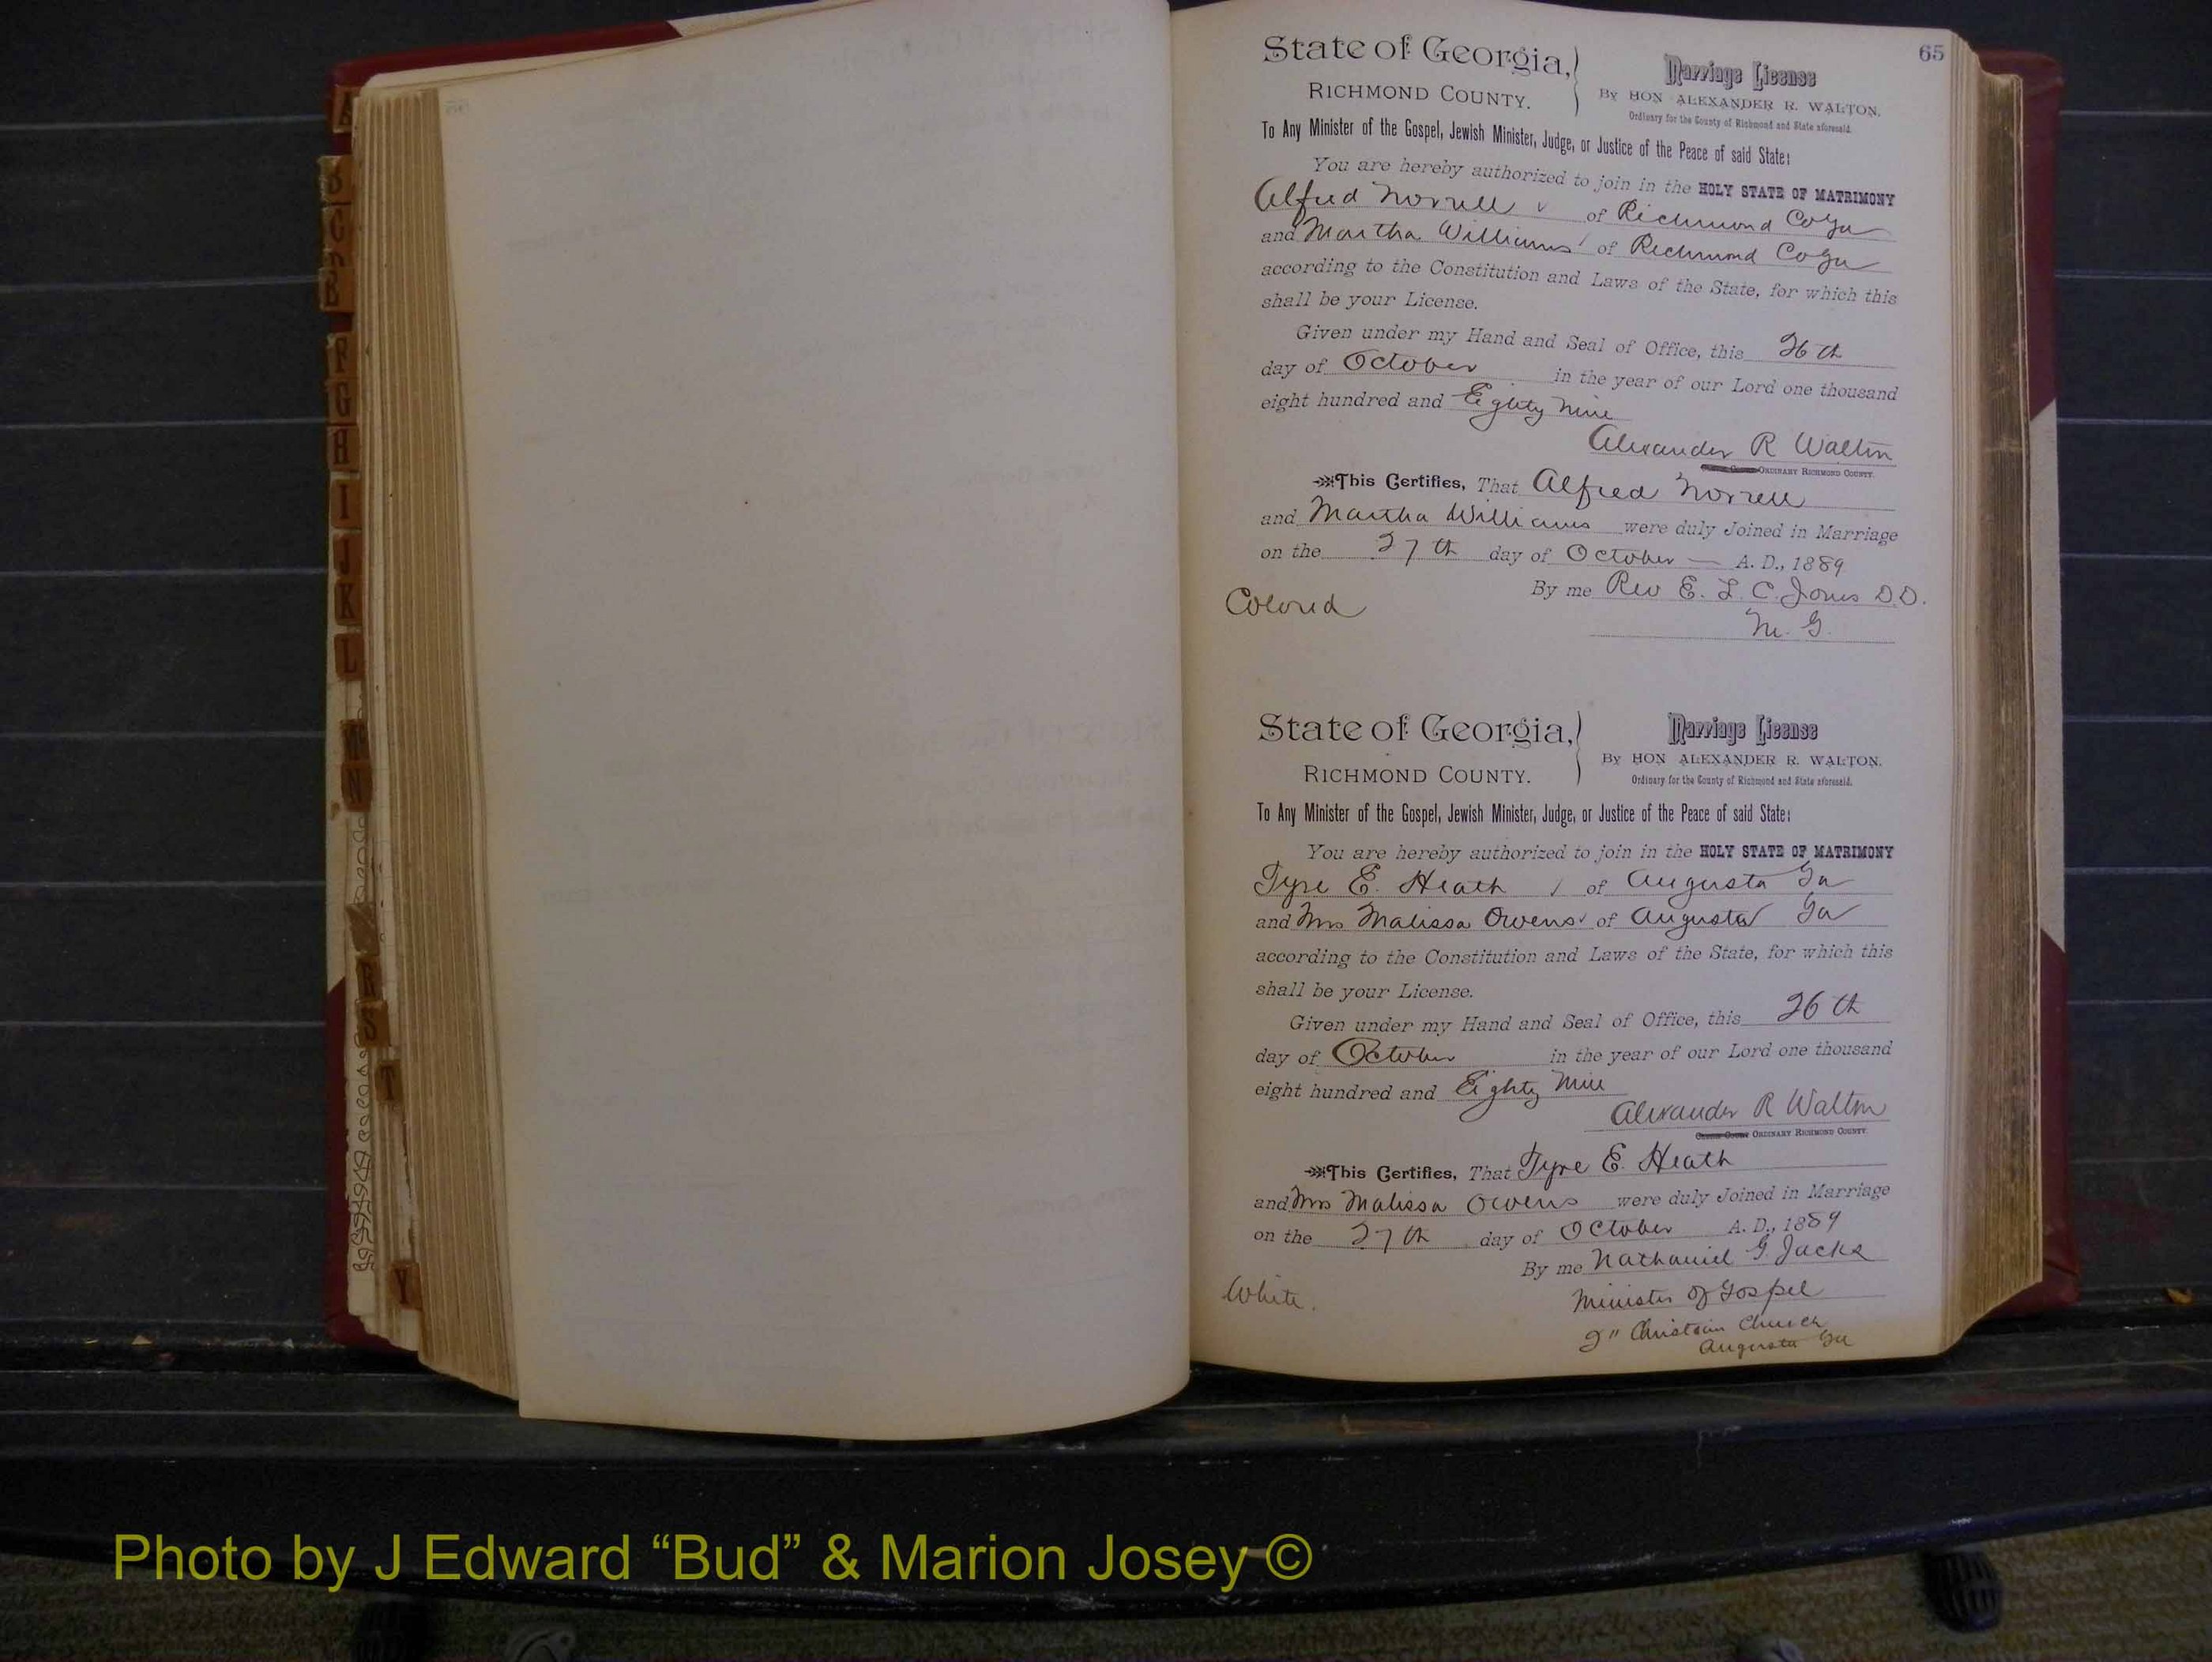 65
State of Georgia,
RICHMOND COUNTY.
Marriage License
By HON ALEXANDER R. WALTON,
Ordinary for the County of Richmond and State aforesaid.
To Any Minister of the Gospel, Jewish Minister, Judge, or Justice of the Peace of said State:
You are hereby authorized to join in the HOLY STATE OF MATRIMONY
Alfred Norrell of Richmond Co Ga
and Martha Williams of Richmond Co Ga
according to the Constitution and Laws of the State, for which this
shall be your License.
Given under my Hand and Seal of Office, this 26th
day of October in the year of our Lord one thousand
eight hundred and Eighty Nine
Alexander R Walton
ORDINARY RICHMOND COUNTY.
This Certifies, That Alfred Norrell
and Martha Williams were duly Joined in Marriage
on the 27th day of October — A. D., 1889
By me Rev E. L. C. Jones D.D.
Colored
M. G.
State of Georgia,
RICHMOND COUNTY.
Marriage License
By HON ALEXANDER R. WALTON,
Ordinary for the County of Richmond and State aforesaid.
To Any Minister of the Gospel, Jewish Minister, Judge, or Justice of the Peace of said State:
You are hereby authorized to join in the HOLY STATE OF MATRIMONY
Tyre E. Heath of Augusta Ga
and Mrs Malissa Owens of Augusta Ga
according to the Constitution and Laws of the State, for which this
shall be your License.
Given under my Hand and Seal of Office, this 26th
day of October in the year of our Lord one thousand
eight hundred and Eighty Nine
Alexander R Walton
ORDINARY RICHMOND COUNTY.
This Certifies, That Tyre E. Heath
and Mrs Malissa Owens were duly Joined in Marriage
on the 27th day of October A. D., 1889
By me Nathaniel G. Jacks
White.
Minister of Gospel
2" Christian Church
Augusta Ga
B
C
F
G
H
I
J
K
L
M
N
R
S
T
Y
Photo by J Edward “Bud” & Marion Josey ©